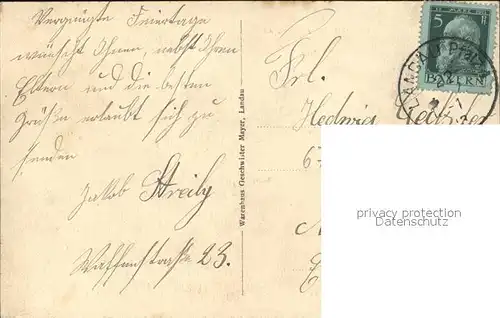 Vergnügte Feiertage
wünscht Ihnen, nebst Ihren
Eltern und die besten
Grüße erlaubt sich zu
senden
Jakob Streily
Waffenstraße 23.
Warenhaus Geschwister Mayer, Landau
Frl.
Hedwig
67
5
BAYERN
LANDAU PFALZ
privacy protection
Datenschutz